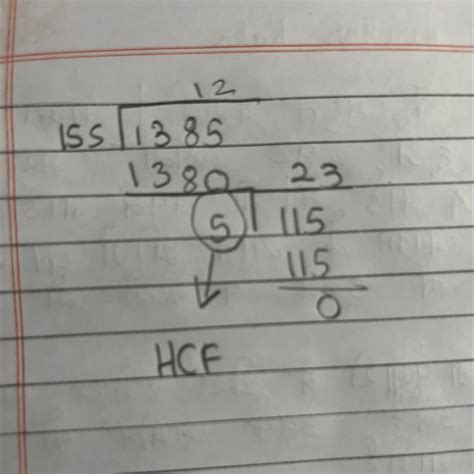 12
155 1385
1380 23
5 115
115
0
HCF